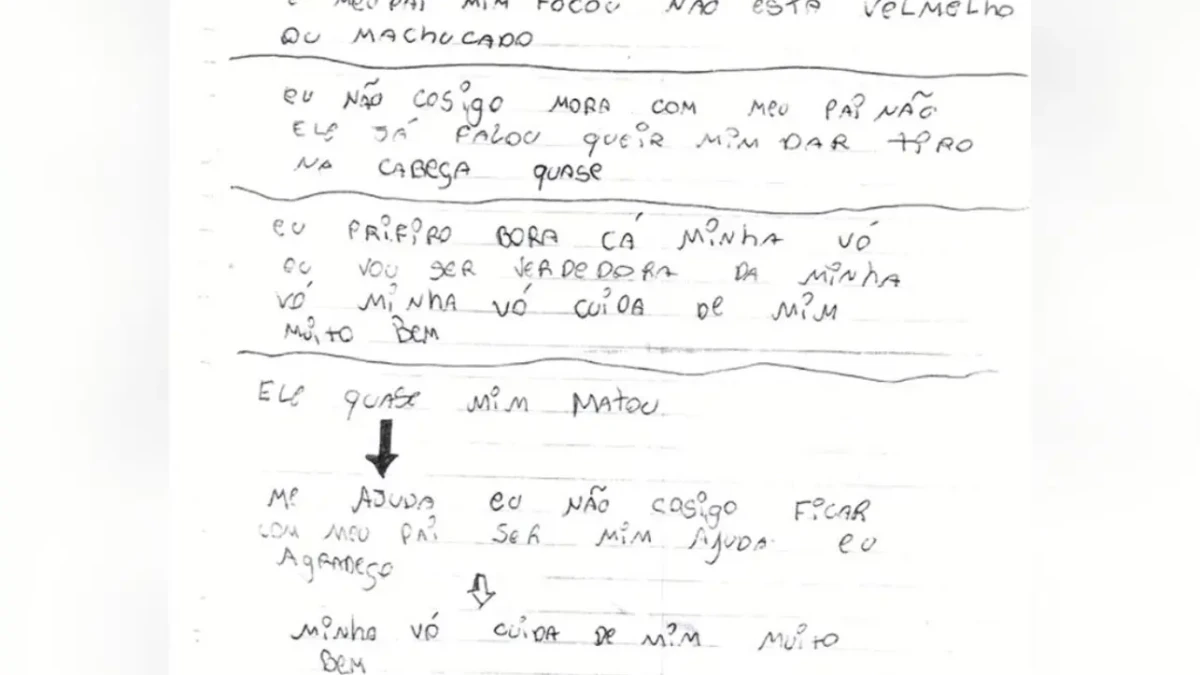 MEU PAI MIM FOCOU NÃO ESTA VELMELHO
OU MACHUCADO
EU NÃO COSIGO MORA COM MEU PAI NÃO
ELE JÁ FALOU QUEIR MIM DAR TIRO
NA CABEÇA QUASE
EU PRIFIRO BORA CÁ MINHA VÓ
OU VOU SER VERDEDORA DA MINHA
VÓ MINHA VÓ CUIDA DE MIM
MUITO BEM
ELE QUASE MIM MATOU
ME AJUDA EU NÃO COSIGO FICAR
COM MEU PAI SER MIM AJUDA EU
AGRADEÇO
MINHA VÓ CUIDA DE MIM MUITO
BEM